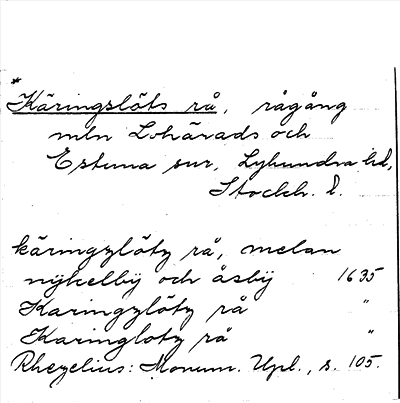 *
Käringslöts rå, rågång
mln Lohärads och
Estuna snr, Lyhundra hd,
Stockh. l.
käringzlötz rå, melan
nÿkelbÿ och åsbÿ 1635
Karingzlötz rå "
Karinglotz rå "
Rhezelius: Monum. Upl., s. 105.